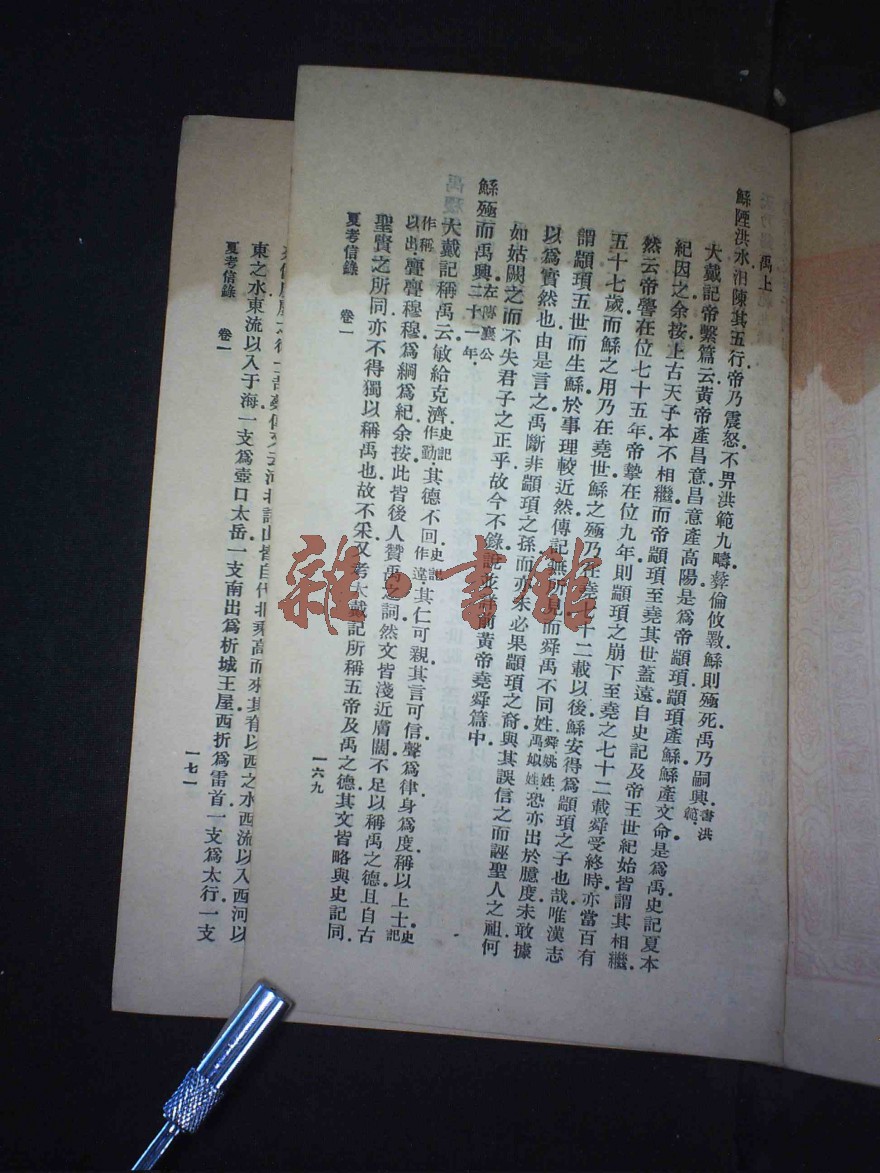 禹上
鯀陻洪水汩陳其五行帝乃震怒不畀洪範九疇彝倫攸斁鯀則殛死禹乃嗣興書洪範
大戴記帝繫篇云黃帝產昌意昌意產高陽是爲帝顓頊顓頊產鯀鯀產文命是爲禹史記夏本
紀因之余按上古天子本不相繼而帝顓頊至堯其世蓋遠自史記及帝王世紀始皆謂其相繼
然云帝嚳在位七十五年帝摯在位九年則顓頊之崩下至堯之七十二載舜受終時亦當百有
五十七歲而鯀之用乃在堯世鯀之殛乃在堯七十二載以後鯀安得爲顓頊之子也哉唯漢志
謂顓頊五世而生鯀於事理較近然傳記無所見而舜禹不同姓舜姚姓禹姒姓恐亦出於臆度未敢據
以爲實然也由是言之禹斷非顓頊之孫而亦未必果顓頊之裔與其誤信之而誣聖人之祖何
如姑闕之而不失君子之正乎故今不錄說並詳前黃帝堯舜篇中
鯀殛而禹興左傳襄公二十一年
大戴記稱禹云敏給克濟史記作勤其德不回史記作違其仁可親其言可信聲爲律身爲度稱以上士史記作稱以出亹亹穆穆爲綱爲紀余按此皆後人贊禹之詞然文皆淺近膚闊不足以稱禹之德且自古
聖賢之所同亦不得獨以稱禹也故不采又考大戴記所稱五帝及禹之德其文皆略與史記同
夏考信錄 卷一 一六九
河北諸山皆自代北乘高而來其脊以西之水西流以入西河以
東之水東流以入于海一支爲壺口太岳一支南出爲析城王屋西折爲雷首一支爲太行一支
夏考信錄 卷一 一七一
雜·書館